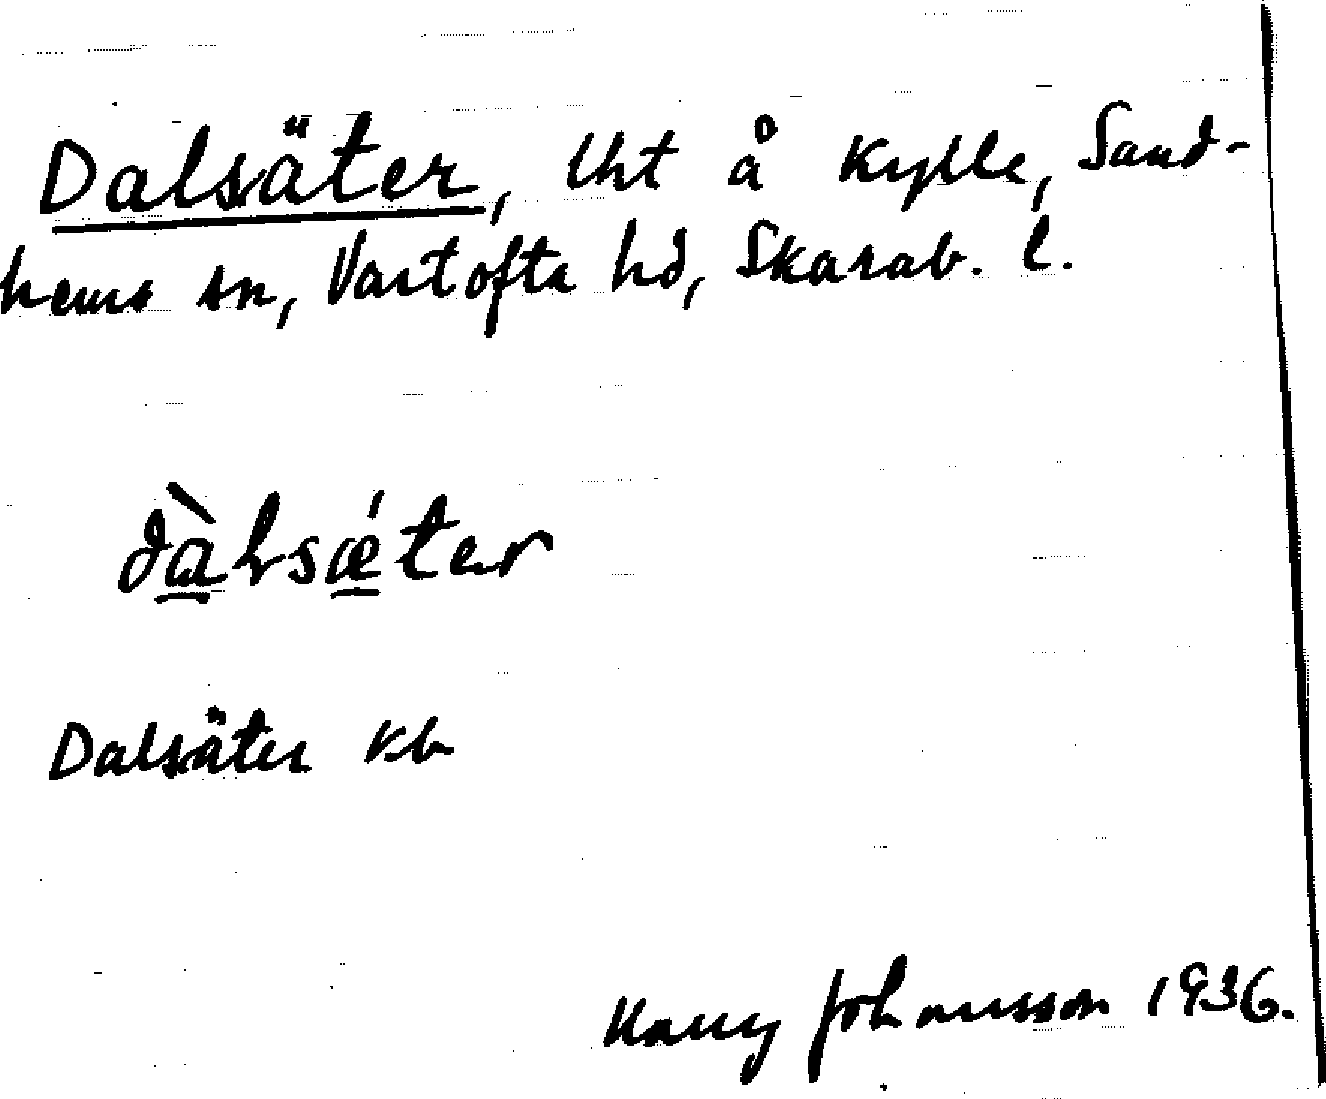 Dalsäter, lht å Kylle, Sand-
hems sn, Vartofta hd, Skarab. l.
dàlsǽter
Dalsäter kb
Harry Johansson 1936.